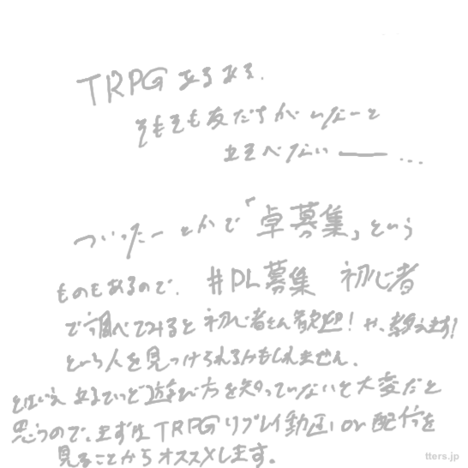 TRPGあるある.
そもそも友だちがいないと
あそべない―…
ついったーとかで「卓募集」という
ものもあるので. #PL募集 初心者
で調べてみると初心者さん歓迎!や、教えます!
という人を見つけられるかもしれません.
とはいえあるていど遊び方を知っていないと大変だと
思うので、まずはTRPGリプレイ動画 or 配信を
見ることからオススメします.
tters.jp